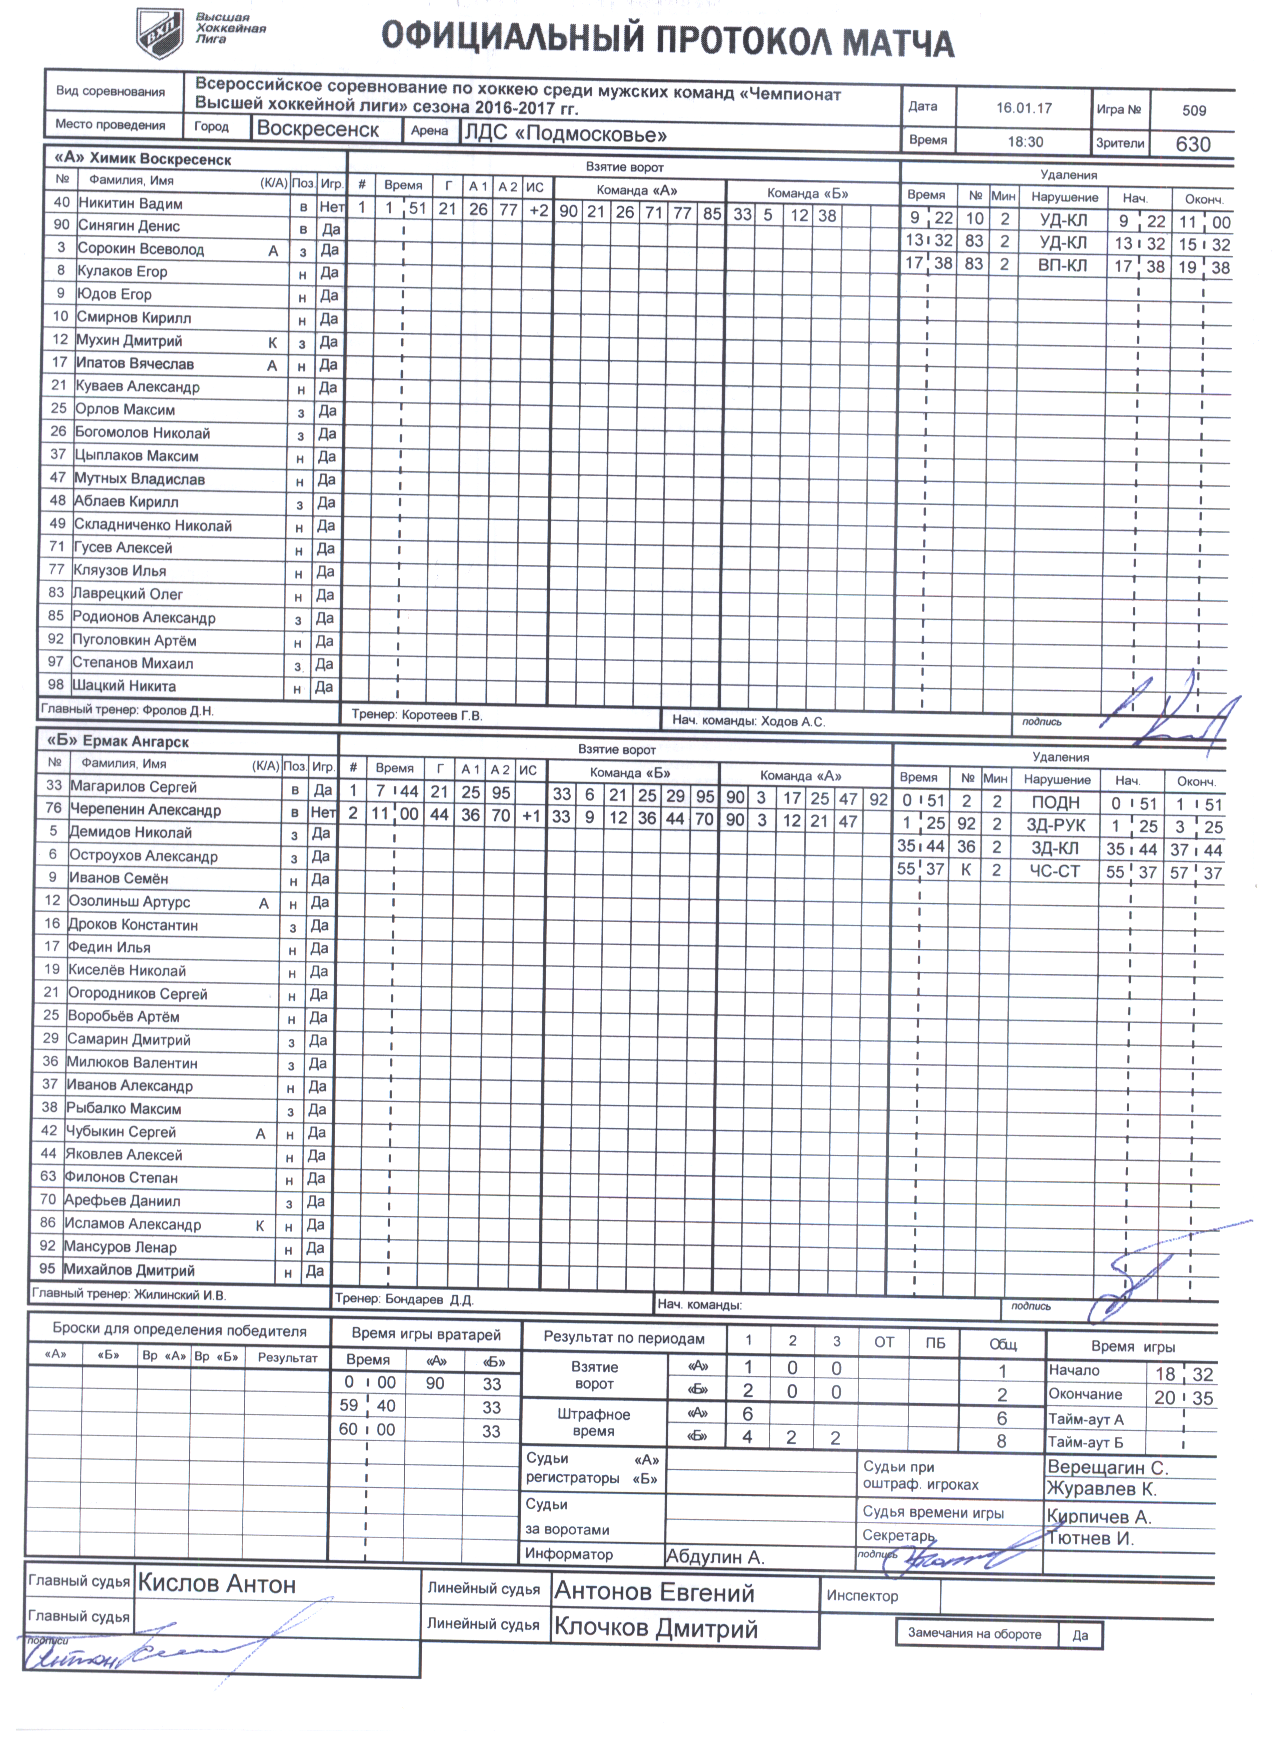 Высшая
Хоккейная
Лига
ВХЛ
ОФИЦИАЛЬНЫЙ ПРОТОКОЛ МАТЧА
Вид соревнования Всероссийское соревнование по хоккею среди мужских команд «Чемпионат
Высшей хоккейной лиги» сезона 2016-2017 гг. Дата 16.01.17 Игра № 509
Место проведения Город Воскресенск Арена ЛДС «Подмосковье» Время 18:30 Зрители 630
«А» Химик Воскресенск Взятие ворот Удаления
№ Фамилия, Имя (К/А) Поз. Игр. # Время Г А 1 А 2 ИС Команда «А» Команда «Б» Время № Мин Нарушение Нач. Оконч.
40 Никитин Вадим в Нет 1 1 51 21 26 77 +2 90 21 26 71 77 85 33 5 12 38 9 22 10 2 УД-КЛ 9 22 11 00
90 Синягин Денис в Да 13 32 83 2 УД-КЛ 13 32 15 32
3 Сорокин Всеволод А з Да 17 38 83 2 ВП-КЛ 17 38 19 38
8 Кулаков Егор н Да
9 Юдов Егор н Да
10 Смирнов Кирилл н Да
12 Мухин Дмитрий К з Да
17 Ипатов Вячеслав А н Да
21 Куваев Александр н Да
25 Орлов Максим з Да
26 Богомолов Николай з Да
37 Цыплаков Максим н Да
47 Мутных Владислав н Да
48 Аблаев Кирилл з Да
49 Складниченко Николай н Да
71 Гусев Алексей н Да
77 Кляузов Илья н Да
83 Лаврецкий Олег н Да
85 Родионов Александр з Да
92 Пуголовкин Артём н Да
97 Степанов Михаил з Да
98 Шацкий Никита н Да
Главный тренер: Фролов Д.Н. Тренер: Коротеев Г.В. Нач. команды: Ходов А.С. подпись
«Б» Ермак Ангарск Взятие ворот Удаления
№ Фамилия, Имя (К/А) Поз. Игр. # Время Г А 1 А 2 ИС Команда «Б» Команда «А» Время № Мин Нарушение Нач. Оконч.
33 Магарилов Сергей в Да 1 7 44 21 25 95 33 6 21 25 29 95 90 3 17 25 47 92 0 51 2 2 ПОДН 0 51 1 51
76 Черепенин Александр в Нет 2 11 00 44 36 70 +1 33 9 12 36 44 70 90 3 12 21 47 1 25 92 2 ЗД-РУК 1 25 3 25
5 Демидов Николай з Да 35 44 36 2 ЗД-КЛ 35 44 37 44
6 Остроухов Александр з Да 55 37 К 2 ЧС-СТ 55 37 57 37
9 Иванов Семён н Да
12 Озолиньш Артурс А н Да
16 Дроков Константин з Да
17 Федин Илья н Да
19 Киселёв Николай н Да
21 Огородников Сергей н Да
25 Воробьёв Артём н Да
29 Самарин Дмитрий з Да
36 Милюков Валентин з Да
37 Иванов Александр н Да
38 Рыбалко Максим з Да
42 Чубыкин Сергей А н Да
44 Яковлев Алексей н Да
63 Филонов Степан н Да
70 Арефьев Даниил з Да
86 Исламов Александр К н Да
92 Мансуров Ленар н Да
95 Михайлов Дмитрий н Да
Главный тренер: Жилинский И.В. Тренер: Бондарев Д.Д. Нач. команды: подпись
Броски для определения победителя Время игры вратарей Результат по периодам 1 2 3 ОТ ПБ Общ Время игры
«А» «Б» Вр «А» Вр «Б» Результат Время «А» «Б» Взятие ворот «А» 1 0 0 1 Начало 18 32
0 00 90 33 «Б» 2 0 0 2 Окончание 20 35
59 40 33 Штрафное время «А» 6 6 Тайм-аут А
60 00 33 «Б» 4 2 2 8 Тайм-аут Б
Судьи «А» Судьи при Верещагин С.
регистраторы «Б» оштраф. игроках Журавлев К.
Судьи Судья времени игры Кирпичев А.
за воротами Секретарь Тютнев И.
Информатор Абдулин А. подпись
Главный судья Кислов Антон Линейный судья Антонов Евгений Инспектор
Главный судья Линейный судья Клочков Дмитрий Замечания на обороте Да
подписи